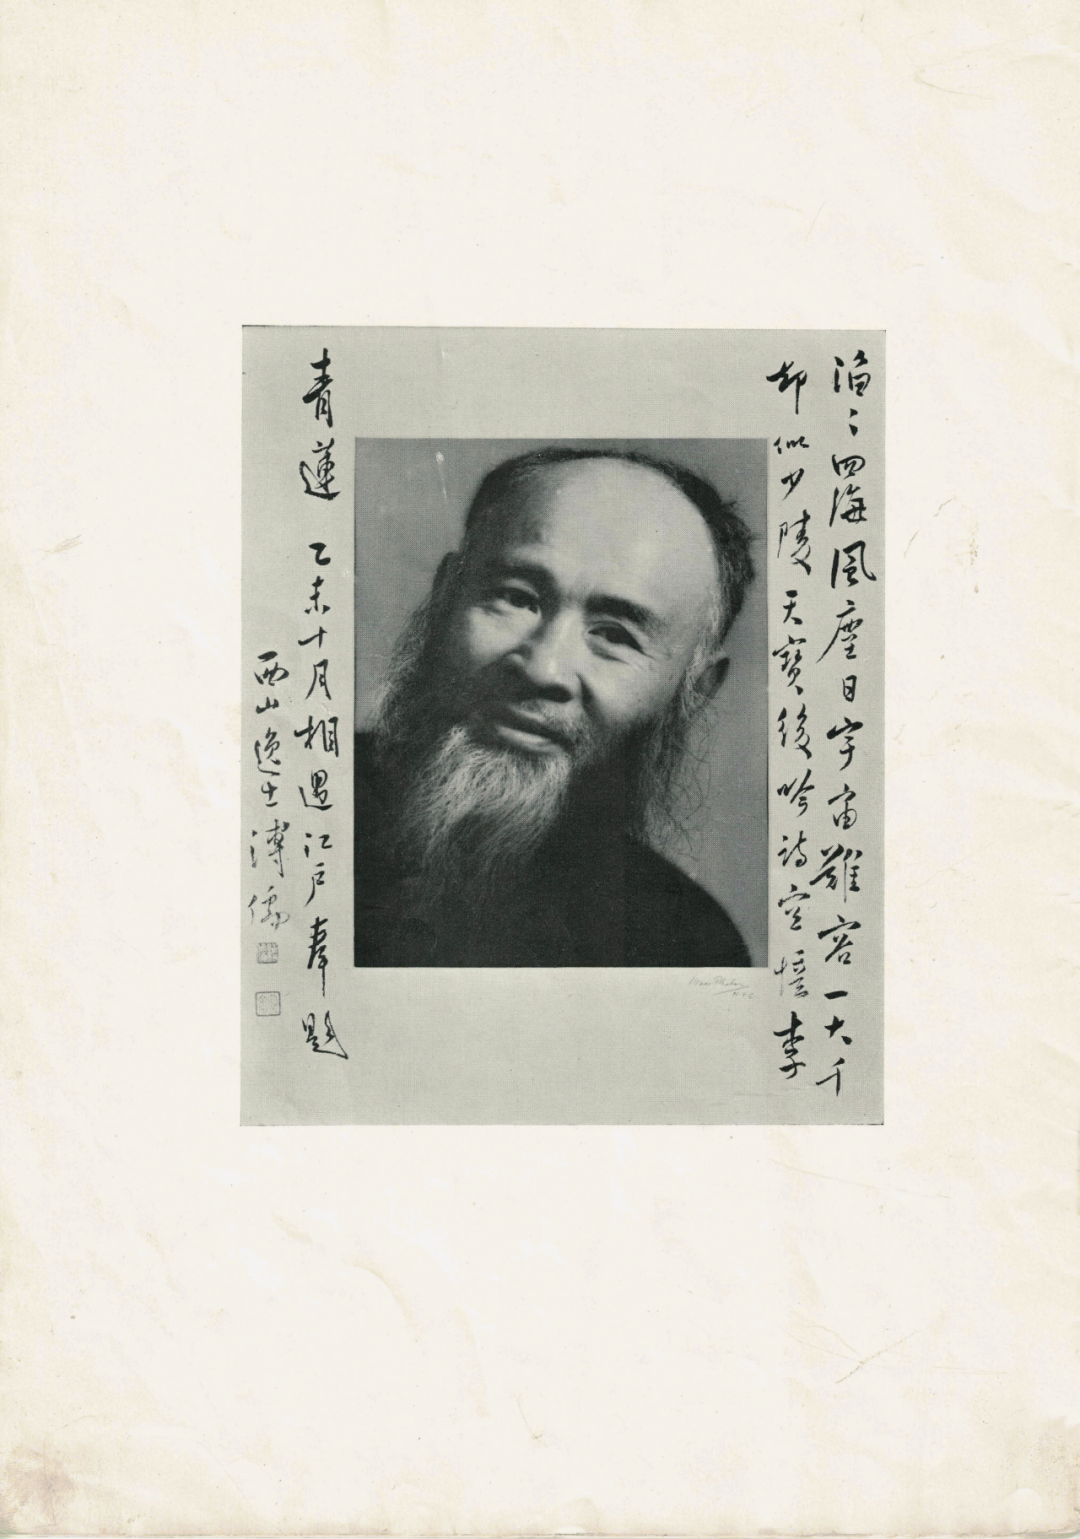 滔〻四海風塵日宇宙難容一大千
却似少陵天寶後吟詩空憶李
青蓮 乙未十月相遇江戶奉題
西山逸士溥儒